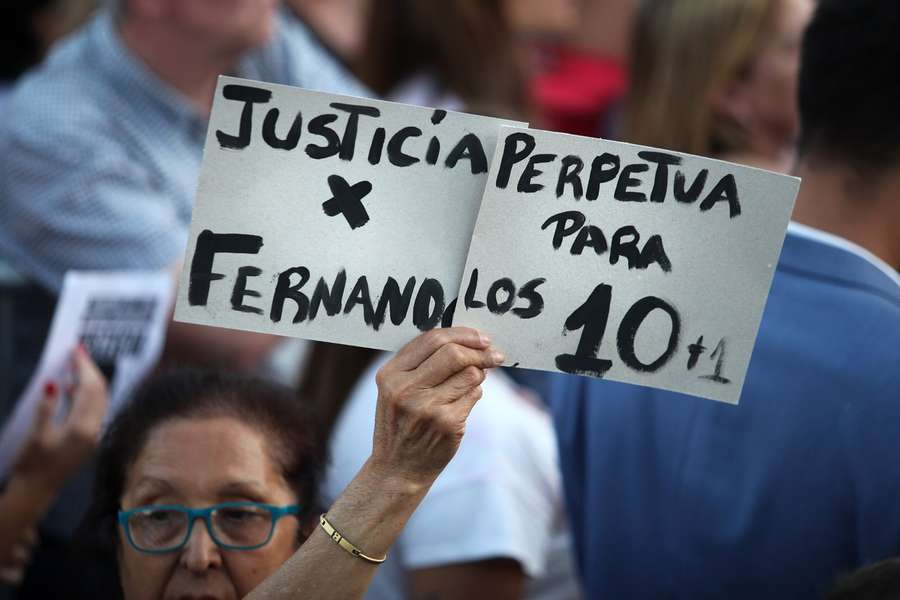 JUSTICIA
X
FERNANDO
PERPETUA
PARA
LOS 10 +1